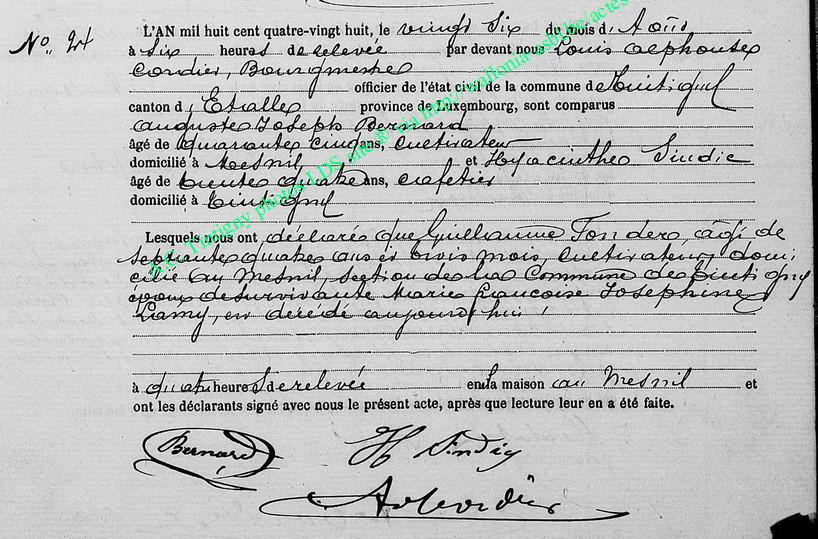 No. 24
L'AN mil huit cent quatre-vingt huit, le vingt six du mois d'Août
à six heures de relevée par devant nous Louis Alphonse
Cordier, Bourgmestre
officier de l'état civil de la commune de Tintigny
canton d'Etalle province de Luxembourg, sont comparus
Auguste Joseph Bernard
âgé de quarante cinq ans, cultivateur
domicilié à Mesnil et Hyacinthe Sindic
âgé de trente quatre ans, cafetier
domicilié à Tintigny
Lesquels nous ont déclaré que Guillaume Tonder, âgé de
septante quatre ans et trois mois, cultivateur, domi
cilié au Mesnil, section de la Commune de Tintigny
époux de survivante Marie Françoise Joséphine
Lamy, est décédé aujourd'hui
à quatre heures de relevée en la maison au Mesnil et
ont les déclarants signé avec nous le présent acte, après que lecture leur en a été faite.
Bernard H Sindic
A Cordier
Tintigny photos LDS via http://wallonia-asbl.be/actes